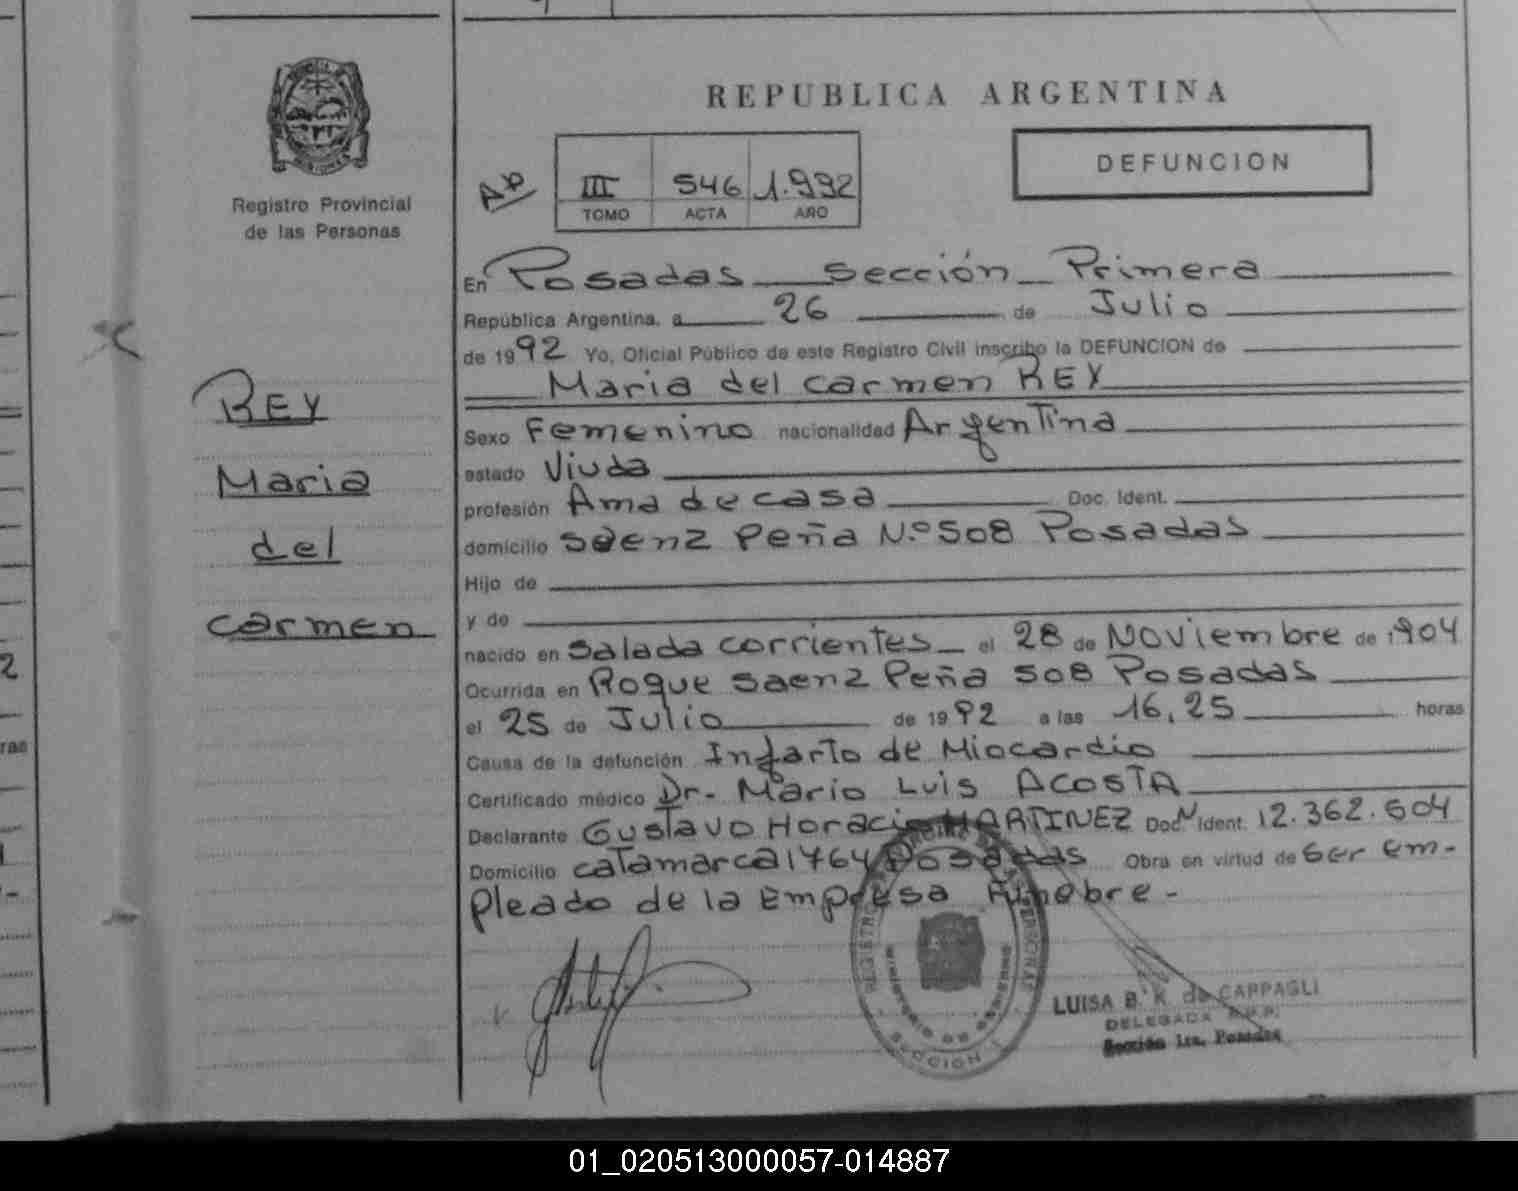 REPUBLICA ARGENTINA
DEFUNCION
Registro Provincial
de las Personas
III 546 1.992
TOMO ACTA AÑO
En Posadas Sección Primera
República Argentina, a 26 de Julio
de 1992 Yo, Oficial Público de este Registro Civil inscribo la DEFUNCION de
Maria del carmen REY
Sexo Femenino nacionalidad Argentina
estado Viuda
profesión Ama de casa Doc. Ident.
domicilio Saenz Peña N.º 508 Posadas
Hijo de
y de
nacido en Salada corrientes el 28 de Noviembre de 1904
Ocurrida en Roque Saenz Peña 508 Posadas
el 25 de Julio de 1992 a las 16,25 horas
Causa de la defunción Infarto de Miocardio
Certificado médico Dr. Mario Luis ACOSTA
Declarante Gustavo Horacio MARTINEZ Doc. N Ident. 12.362.604
Domicilio catamarca 1764 Posadas Obra en virtud de ser em-
pleado de la Empresa Funebre -
REY
Maria
del
carmen
SECCION
LUISA B. K. de CAPPAGLI
DELEGADA R.P.P.
Sección 1ra. Posadas
2
ras
01_020513000057-014887